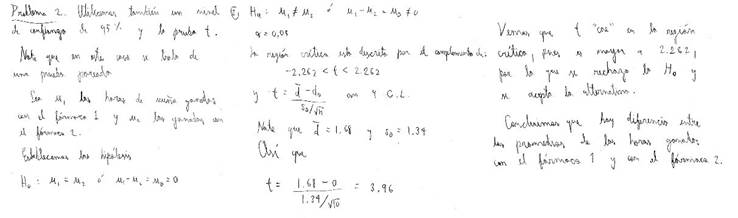 Problema 2. Utilizamos también un nivel
de confianza de 95% y la prueba t.
Note que en este caso se trata de
una prueba pareada
Sea μ₁ las horas de sueño ganadas
con el fármaco 1 y μ₂ las ganadas con
el fármaco 2.
Establecemos las hipótesis
H₀ : μ₁ = μ₂ ó μ₁-μ₂ = μ₀ = 0
Hₐ : μ₁ ≠ μ₂ ó μ₁-μ₂ = μ₀ ≠ 0
α = 0.05
La región crítica está descrita por el complemento de:
-2.262 < t < 2.262
y t = (d̄ - d₀)/(s_d/√n) con 9 G.L.
Note que d̄ = 1.68 y s_d = 1.34
Así que
t = (1.68 - 0)/(1.34/√10) = 3.96
Vemos que t "cae" en la región
crítica, pues es mayor a 2.262,
por lo que se rechaza la H₀ y
se acepta la alternativa.
Concluimos que hay diferencia entre
los promedios de las horas ganadas
con el fármaco 1 y con el fármaco 2.